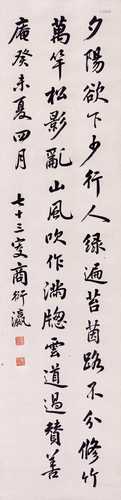 夕陽欲下少行人綠遍苔茵路不分修竹
萬竿松影亂山風吹作滿牕雲道過贊善
庵癸未夏四月 七十三叟商衍瀛